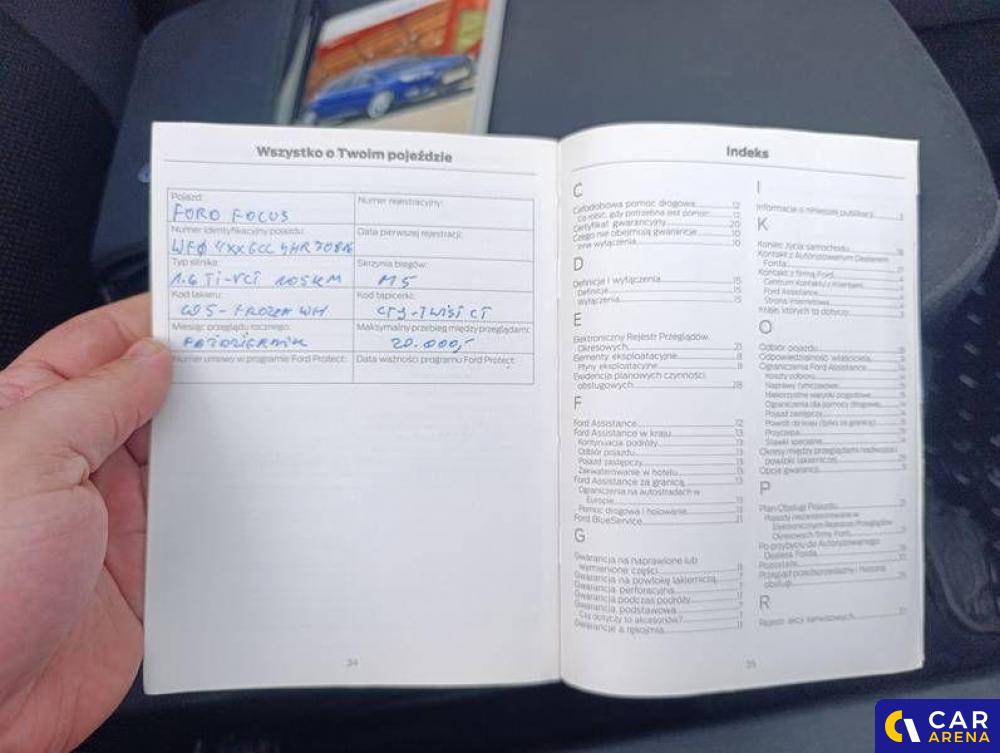 Wszystko o Twoim pojeździe
Pojazd:
FORD FOCUS
Numer rejestracyjny:
Numer identyfikacyjny pojazdu:
Data pierwszej rejestracji:
Typ silnika:
1.6 Ti-VCT 105KM
Skrzynia biegów:
M5
Kod lakieru:
FROZEN WH
Kod tapicerki:
Miesiąc przeglądu rocznego:
PAŹDZIERNIK
Maksymalny przebieg między przeglądami:
20.000,-
Numer umowy w programie Ford Protect:
Data ważności programu Ford Protect:
34
Indeks
C
Całodobowa pomoc drogowa 12
Co robić, gdy potrzebna jest pomoc 12
Certyfikat gwarancyjny 20
Czego nie obejmują gwarancje 10
Inne wyłączenia 10
D
Definicje i wyłączenia 15
Definicje 15
Wyłączenia 15
E
Elektroniczny Rejestr Przeglądów
Okresowych 21
Elementy eksploatacyjne 8
Płyny eksploatacyjne 8
Ewidencja planowych czynności
obsługowych 28
F
Ford Assistance 12
Ford Assistance w kraju 13
Kontynuacja podróży 13
Odbiór pojazdu 13
Pojazd zastępczy 13
Zakwaterowanie w hotelu 13
Ford Assistance za granicą 13
Ograniczenia na autostradach w
Europie 13
Pomoc drogowa i holowanie 13
Ford BlueService 21
G
Gwarancja na naprawione lub
wymienione części 11
Gwarancja na powłokę lakierniczą 7
Gwarancja perforacyjna 7
Gwarancja podczas podróży 11
Gwarancja podstawowa 7
Czy dotyczy to akcesoriów? 7
Gwarancje a rękojmia 11
I
Informacje o niniejszej publikacji 3
K
Koniec życia samochodu
Kontakt z Autoryzowanym Dealerem
Forda
Kontakt z firmą Ford
Centrum Kontaktu z Klientami
Ford Assistance
Strona internetowa
Kraje, których to dotyczy
O
Odbiór pojazdu
Odpowiedzialność właściciela
Ograniczenia Ford Assistance
Koszty odbioru
Naprawy tymczasowe
Niekorzystne warunki pogodowe
Ograniczenia dla pomocy drogowej
Pojazd zastępczy
Powrót do kraju (tylko za granicą)
Przyczepa
Stawki specjalne
Okresy między przeglądami nadwozia i
powłoki lakierniczej
Opcje gwarancji
P
Plan Obsługi Pojazdu
Pojazdy niezarejestrowane w
Elektronicznym Rejestrze Przeglądów
Okresowych firmy Ford
Po przybyciu do Autoryzowanego
Dealera Forda
Pozostałe
Przegląd przedsprzedażny i historia
obsługi
R
Rejestr akcji serwisowych
35
CAR
ARENA